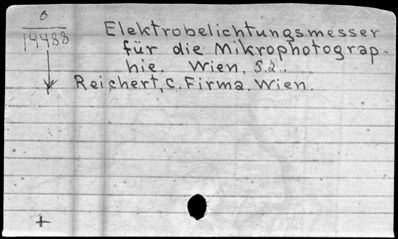 o
14488
Elektrobelichtungsmesser
für die Mikrophotograp-
hie. Wien, 52.
Reichert, C. Firma. Wien.
+